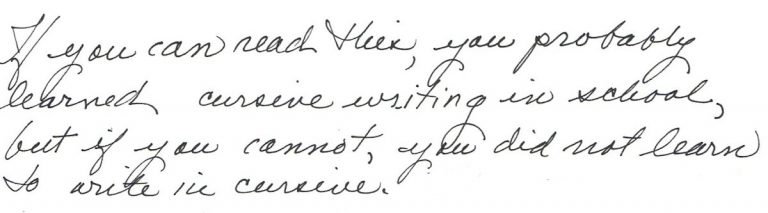 If you can read this, you probably
learned cursive writing in school,
but if you cannot, you did not learn
to write in cursive.